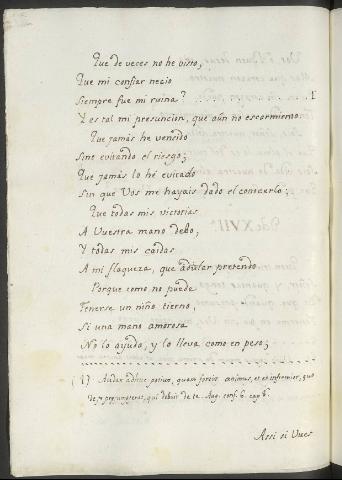 Que de veces no he visto,
Que mi confiar necio
Siempre fue mi ruina? 1
Y es tal mi presuncion, que aún no escarmiento.
Que jamás he vencido
Sinó evitando el riesgo;
Que jamás lo hé evitado
Sin que Vos me hayais dado el conocerlo;
Que todas mis victorias
A Vuestra mano debo;
Y todas mis caidas
A mi flaqueza, que adular pretendo.
Porque como no puede
Tenerse un niño tierno,
Si una mano amorosa
No lo ayuda, y lo lleva como en peso;
(1) Audax adhuc potius, quam fortis animus, et eo infirmior, quo
de se præsumpserat, qui debuit de te. Aug. conf. 6. cap. 8.
Assi si Vues